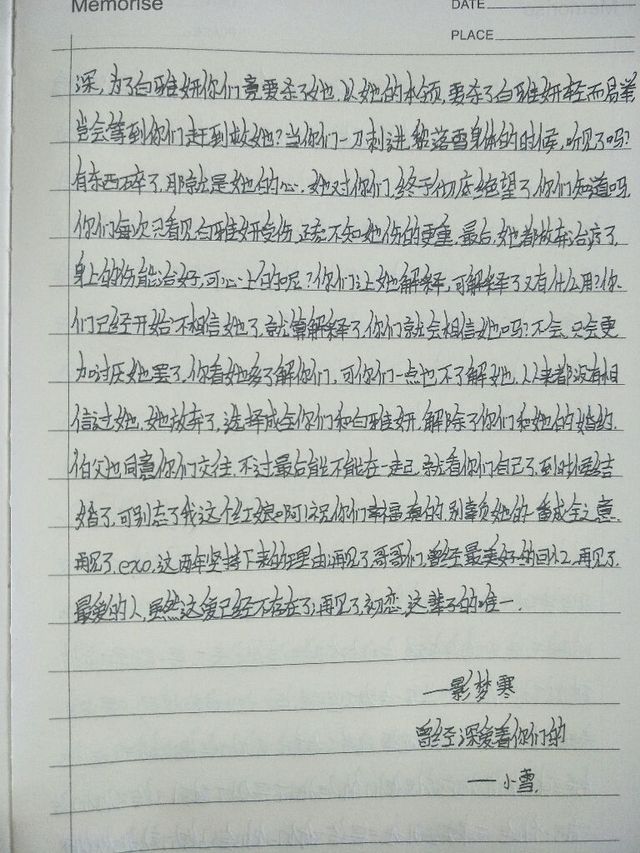 Memorise
DATE
PLACE
深,为了白雅妍你们竟要杀了她.以她的本领,要杀了白雅妍轻而易举
岂会等到你们赶到救她?当你们一刀刺进黎落雪身体的时候,听见了吗?
有东西碎了,那就是她的心.她对你们终于彻底绝望了,你们知道吗
你们每次只看见白雅妍受伤,正不知她伤的更重.最后,她都放弃治疗了,
身上的伤能治好,可心上的呢?你们让她解释,可解释了又有什么用?你
们已经开始不相信她了,就算解释了,你们就会相信她吗?不会,只会更
加讨厌她罢了.你看她多了解你们,可你们一点也不了解她,从来都没有相
信过她.她放弃了,选择成全你们和白雅妍,解除了你们和她的婚约.
伯父也同意你们交往.不过最后能不能在一起,就看你们自己了,到时候结
婚了,可别忘了我这个红娘啊!祝你们幸福,真的,别辜负她的一番成全之意.
再见了,exo,这两年坚持下来的理由;再见了,哥哥们,曾经最美好的回忆;再见了,
最爱的人,虽然这爱已经不存在了;再见了,初恋,这辈子的唯一.
——影梦寒
曾经深爱着你们的
——小雪.